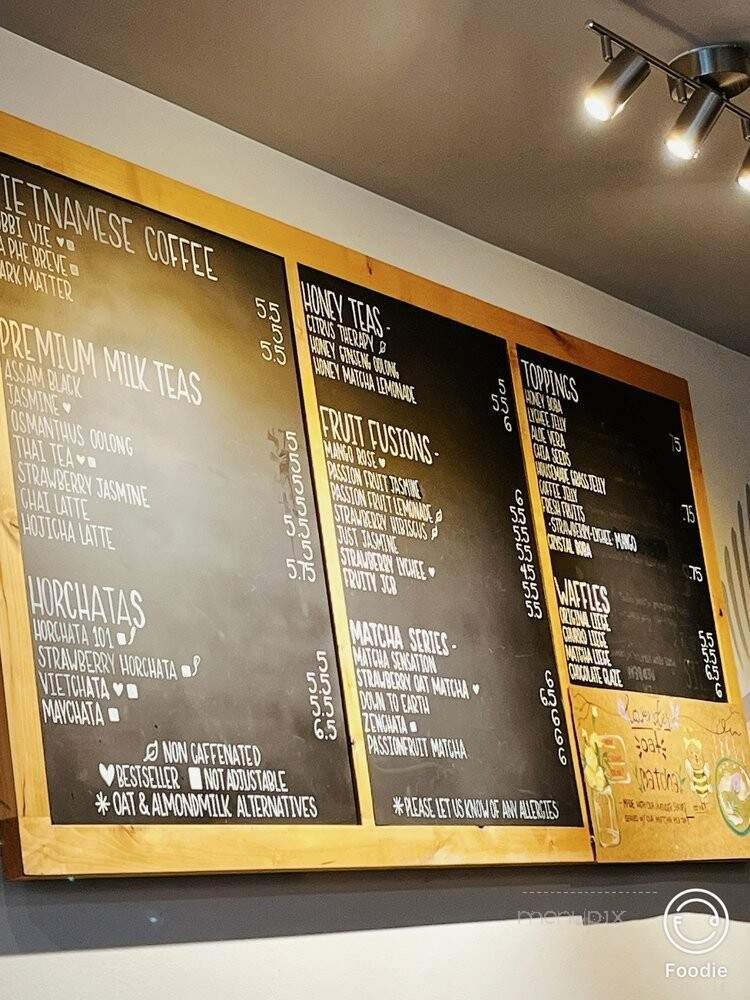 IETNAMESE COFFEE
OBBI VIE ♥■
A PHE BREVE ■
ARK MATTER
5.5
5
5.5
PREMIUM MILK TEAS
ASSAM BLACK
JASMINE ♥
OSMANTHUS OOLONG
THAI TEA ♥■
STRAWBERRY JASMINE
CHAI LATTE
HOJICHA LATTE
5
5
5
5
5.5
5
5.75
HORCHATAS
HORCHATA 101 ■
STRAWBERRY HORCHATA ■
VIETCHATA ♥■
MAYCHATA ■
5
5.5
5.5
6.5
NON CAFFENATED
♥BESTSELLER ■NOT ADJUSTABLE
*OAT & ALMONDMILK ALTERNATIVES
HONEY TEAS -
CITRUS THERAPY
HONEY GINSENG OOLONG
HONEY MATCHA LEMONADE
5
5.5
6
FRUIT FUSIONS -
MANGO ROSE ♥
PASSION FRUIT JASMINE
PASSION FRUIT LEMONADE
STRAWBERRY HIBISCUS
JUST JASMINE
STRAWBERRY LYCHEE ♥
FRUTTY JCB
6
5.5
5.5
5.5
4.5
5.5
5.5
MATCHA SERIES -
MATCHA SENSATION
STRAWBERRY OAT MATCHA ♥
DOWN TO EARTH
ZENCHATA ■
PASSIONFRUIT MATCHA
6
6.5
6
6
6
*PLEASE LET US KNOW OF ANY ALLERGIES
TOPPINGS
HONEY BOBA
LYCHEE JELLY
ALOE VERA
CHIA SEEDS
HOUSEMADE GRASS JELLY
COFFEE JELLY
FRESH FRUITS
-STRAWBERRY-LYCHEE-MANGO
CRYSTAL BOBA
.75
.75
.75
WAFFLES
ORIGINAL LIEGE
CHURRO LIEGE
MATCHA LIEGE
CHOCOLATE GLAZE
5.5
6
6.5
6
lavender
oat
matcha
menupix
Foodie